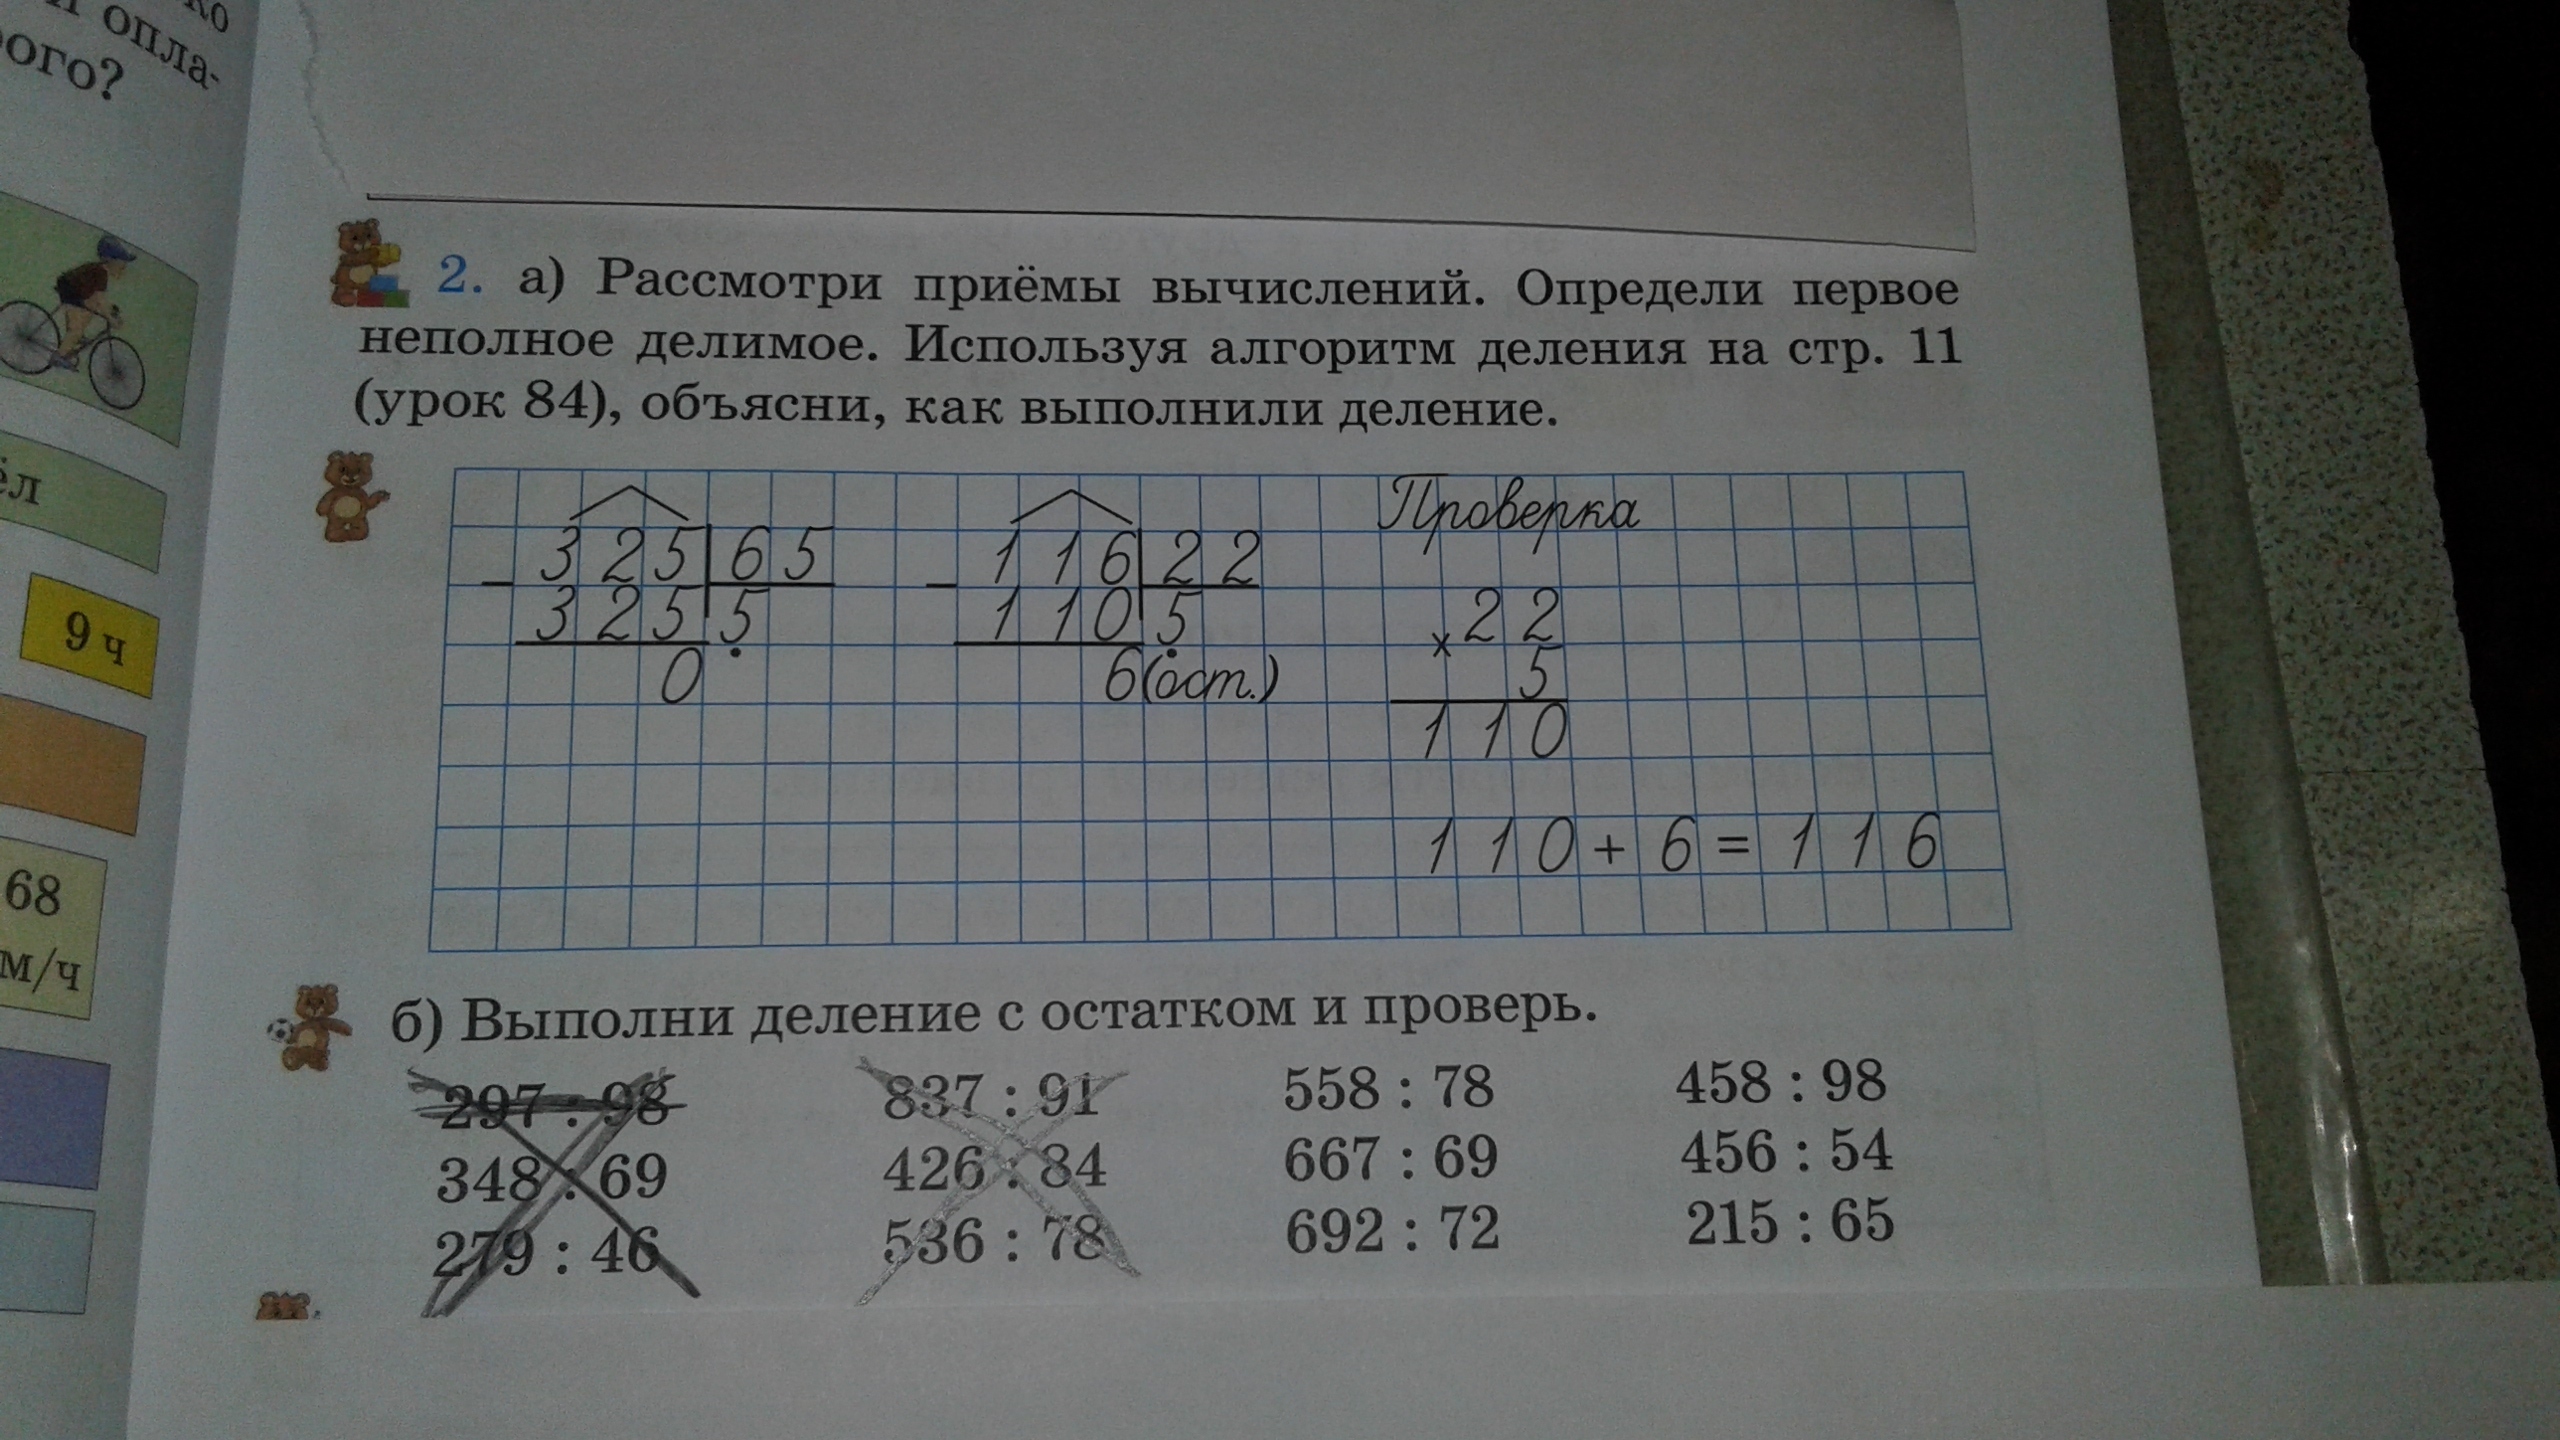 ко
опла-
ого?
ёл
9 ч
68
м/ч
2. а) Рассмотри приёмы вычислений. Определи первое
неполное делимое. Используя алгоритм деления на стр. 11
(урок 84), объясни, как выполнили деление.
325 65
325 5
0
116 22
110 5
6(ост.)
Проверка
22
× 5
110
110 + 6 = 116
б) Выполни деление с остатком и проверь.
297 : 98 837 : 91 558 : 78 458 : 98
348 : 69 426 : 84 667 : 69 456 : 54
279 : 46 536 : 78 692 : 72 215 : 65